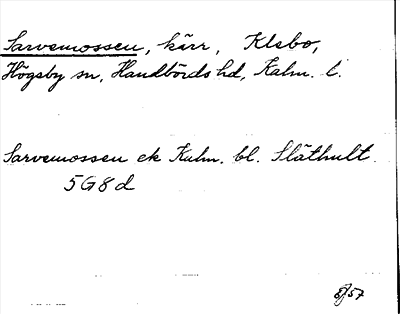 Sarvemossen, kärr, Klsbo,
Högsby sn, Handbörds hd, Kalm. l.
Sarvemossen ek Kalm. bl. Släthult.
5G8d
57